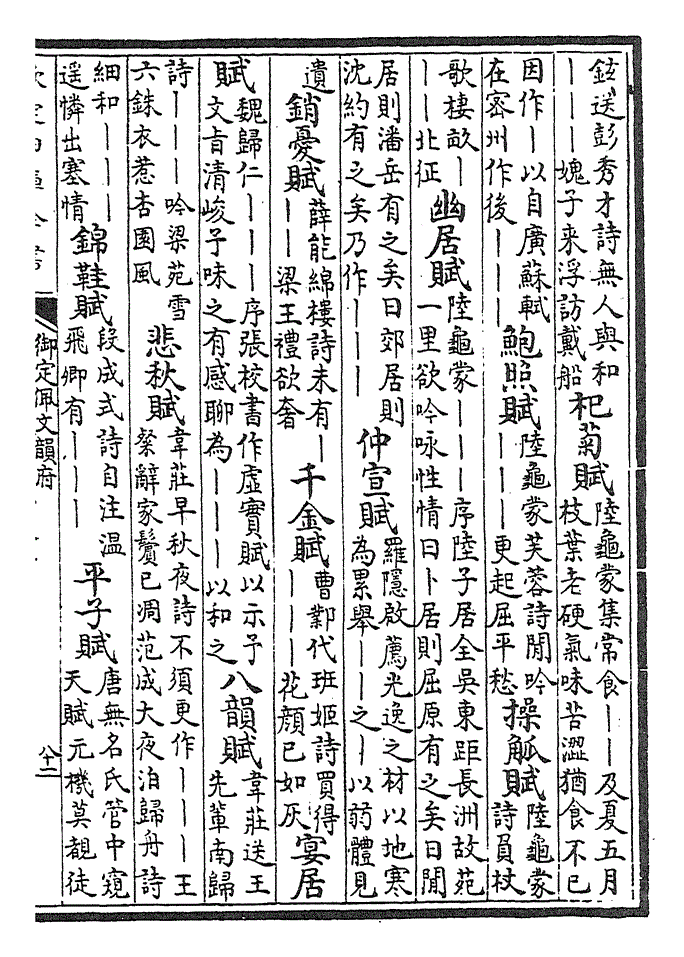 鉉送彭秀才詩無人與和
｜｜｜媿子来浮訪戴船
杞菊賦
陸龜蒙集常食｜｜及夏五月
枝葉老硬氣味苦澀猶食不已
因作｜以自廣蘇軾
在密州作後｜｜｜
鮑照賦
陸龜蒙芙蓉詩閒吟
｜｜｜更起屈平愁
操觚賦
陸龜蒙
詩員杖
歌棲畝｜
｜｜北征
幽居賦
陸龜蒙｜｜｜序陸子居全吳東距長洲故苑
一里欲吟咏性情曰卜居則屈原有之矣曰閒
居則潘岳有之矣曰郊居則
沈約有之矣乃作｜｜｜
仲宣賦
羅隱啟薦光逸之材以地寒
為累舉｜｜之｜以弱體見
遺
銷憂賦
薛能綿樓詩未有｜
｜｜梁王禮欲奢
千金賦
曹鄴代班姬詩買得
｜｜｜花顏已如灰
宴居
賦
魏歸仁｜｜｜序張校書作虛實賦以示予
文旨清峻予味之有感聊為｜｜｜以和之
八韻賦
韋莊送王
先輩南歸
詩｜｜｜吟梁苑雪
六銖衣惹杏園風
悲秋賦
韋莊早秋夜詩不須更作｜｜｜王
粲辭家鬢已凋范成大夜泊歸舟詩
細和｜｜｜
遥憐出塞情
錦鞋賦
段成式詩自注溫
飛卿有｜｜｜
平子賦
唐無名氏管中窺
天賦元機莫覩徒
欽定四庫全書
御定佩文韻府
八十二